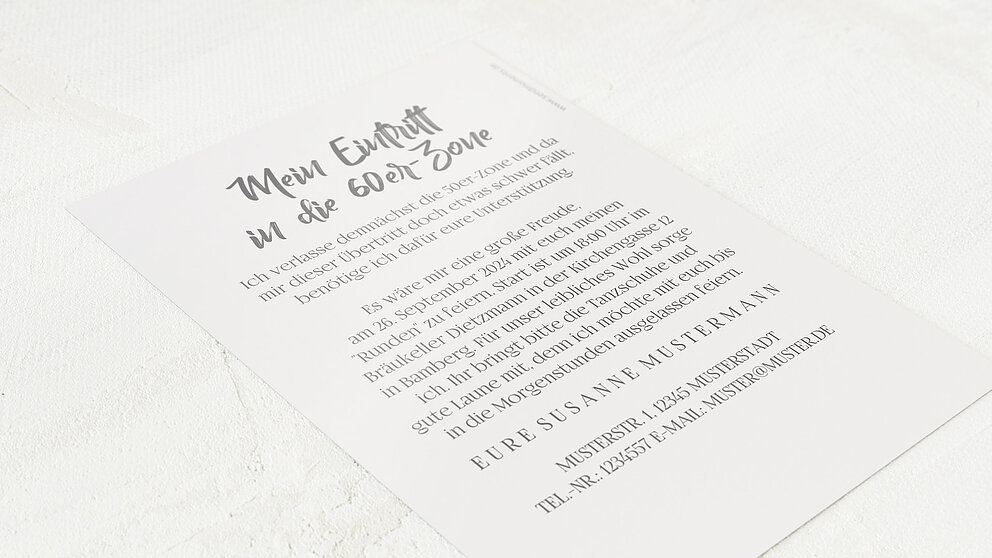 Mein Eintritt
in die 60er-Zone
Ich verlasse demnächst die 50er-Zone und da
mir dieser Übertritt doch etwas schwer fällt,
benötige ich dafür eure Unterstützung.
Es wäre mir eine große Freude,
am 26. September 2024 mit euch meinen
"Runden" zu feiern. Start ist um 18:00 Uhr im
Bräukeller Dietzmann in der Kirchengasse 12
in Bamberg. Für unser leibliches Wohl sorge
ich. Ihr bringt bitte die Tanzschuhe und
gute Laune mit, denn ich möchte mit euch bis
in die Morgenstunden ausgelassen feiern.
EURE SUSANNE MUSTERMANN
MUSTERSTR. 1, 12345 MUSTERSTADT
TEL.-NR.: 1234557 E-MAIL: MUSTER@MUSTER.DE